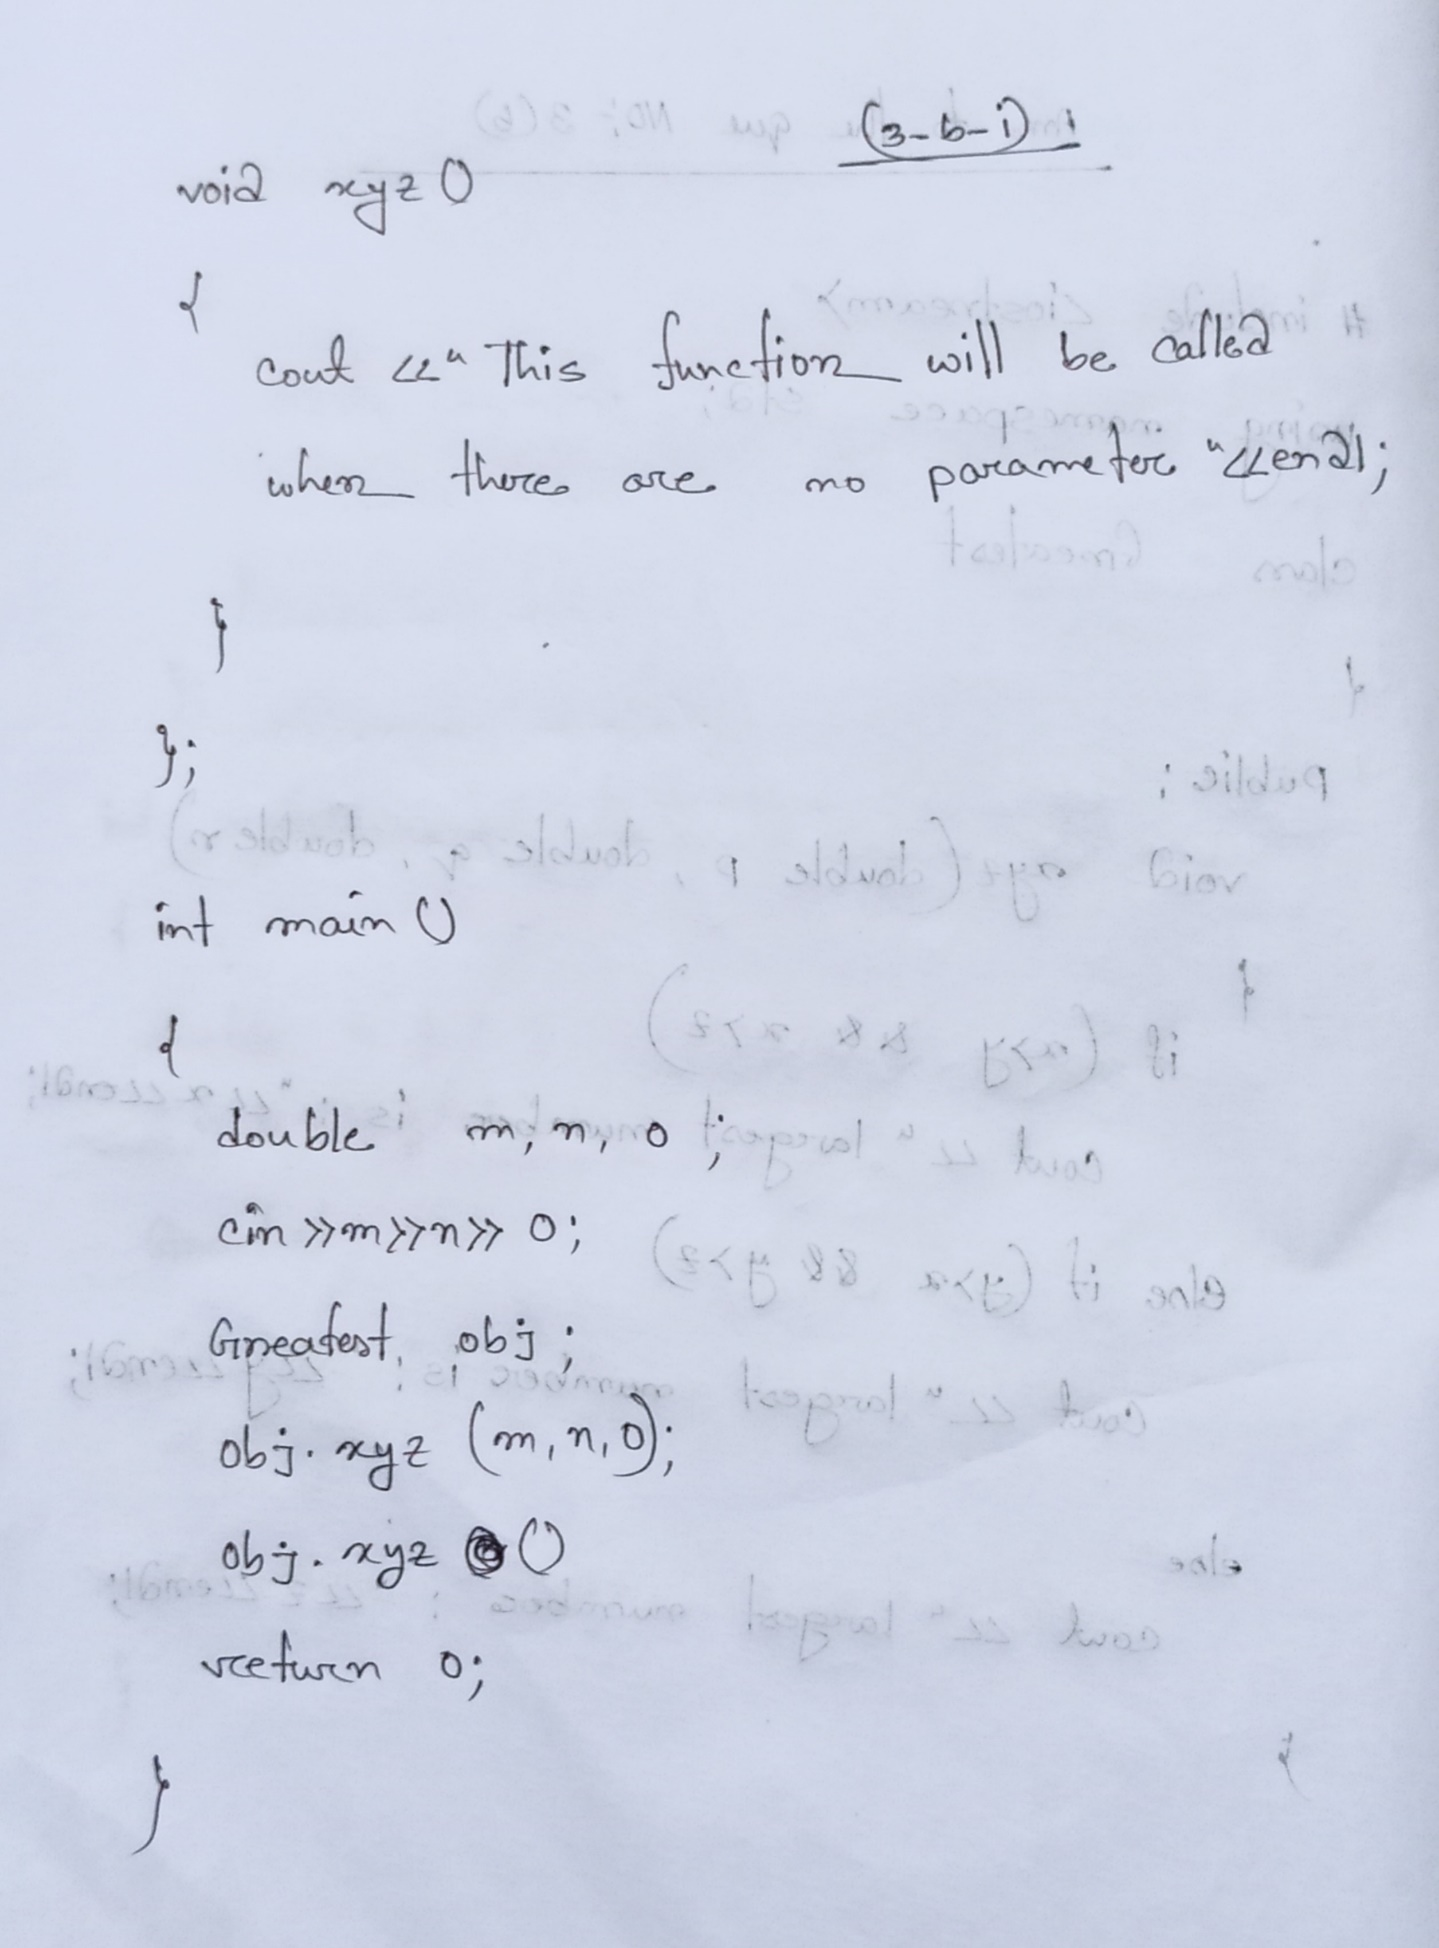 (3-b-i)
void xyz ()
{
cout << " This function will be called
when there are no parameter "<<endl;
}
};
int main ()
{
double m, n, o ;
cin >>m>>n>> o;
Greatest obj ;
obj. xyz (m, n, o);
obj. xyz ()
return 0;
}